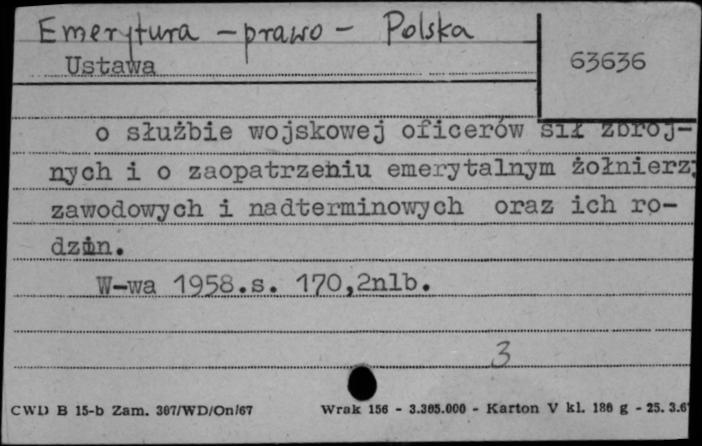 Emerytura - prawo - Polska
Ustawa
63636
o służbie wojskowej oficerów sił zbroj-
nych i o zaopatrzeniu emerytalnym żołnierzy
zawodowych i nadterminowych oraz ich ro-
dzin.
W-wa 1958.s. 170,2nlb.
3
CWD B 15-b Zam. 307/WD/On/67 Wrak 156 - 3.305.000 - Karton V kl. 180 g - 25. 3.6